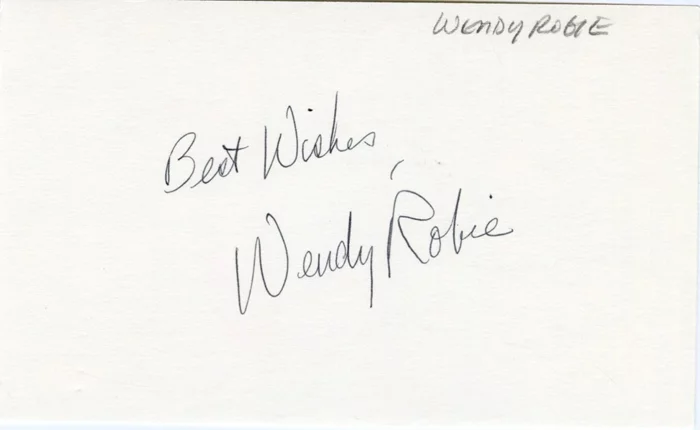 WENDY ROBIE
Best Wishes,
Wendy Robie